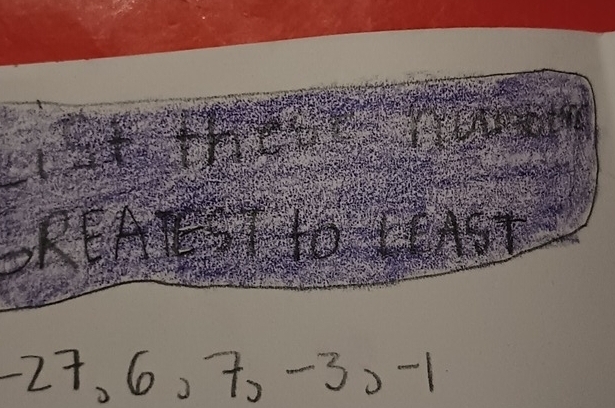 List these numbers
GREATEST to LEAST
-27, 6, 7, -3, -1